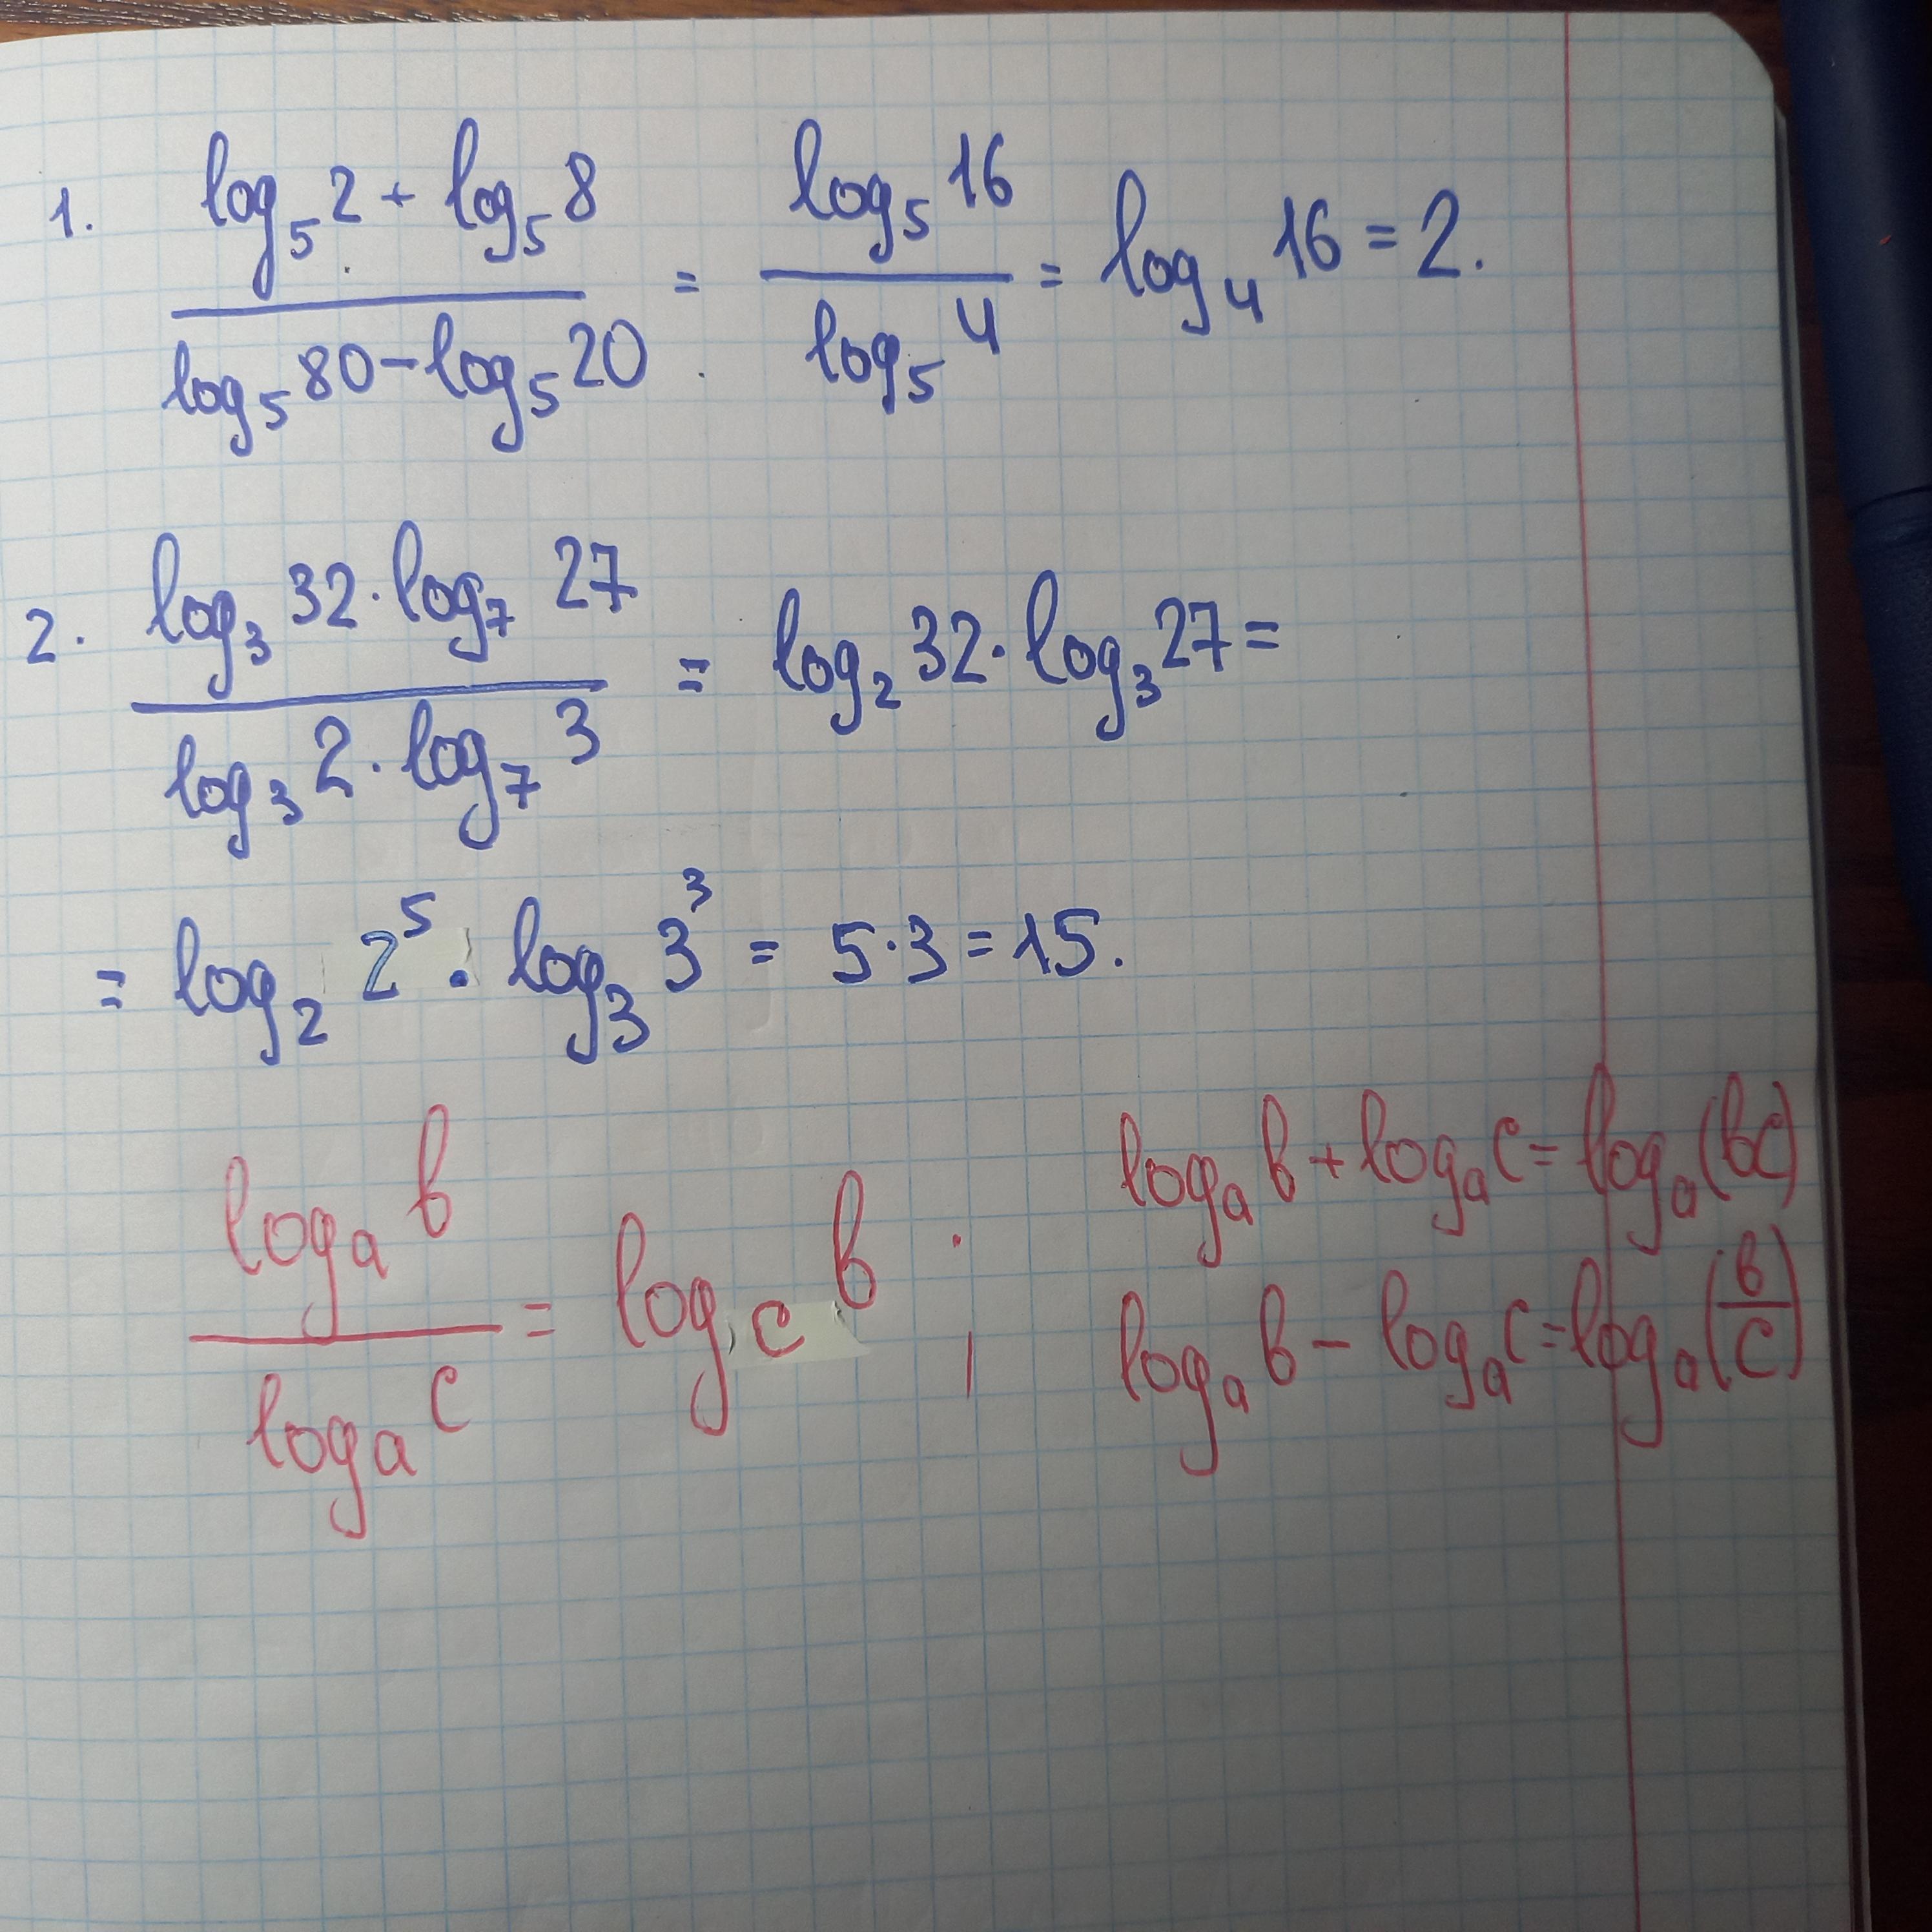 1. (log₅ 2 + log₅ 8) / (log₅ 80 - log₅ 20) = log₅ 16 / log₅ 4 = log₄ 16 = 2.
2. (log₃ 32 · log₇ 27) / (log₃ 2 · log₇ 3) = log₂ 32 · log₃ 27 =
= log₂ 2⁵ · log₃ 3³ = 5 · 3 = 15.
logₐ b / logₐ c = log_c b ;
logₐ b + logₐ c = logₐ (bc)
logₐ b - logₐ c = logₐ (b/c)